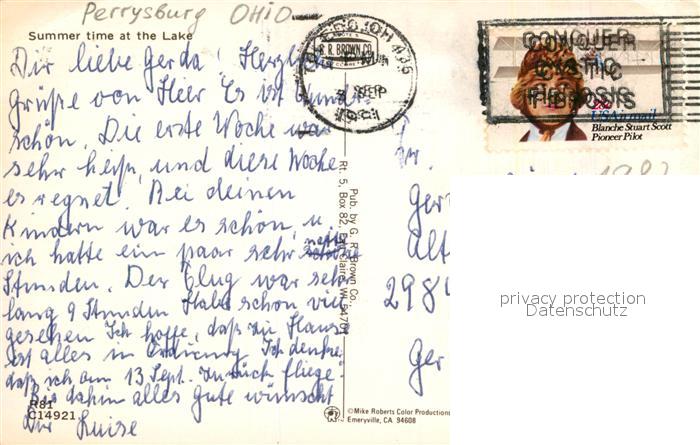 Perrysburg OHIO
Summer time at the Lake
Dir liebe Gerda! Herzliche
Grüße von Hier Es ist wunder
schön. Die erste Woche war
sehr heiß, und diese Woche
es regnet. Bei deinen
Kindern war es schön, u.
ich hatte ein paar sehr nette
Stunden. Der Flug war sehr
lang 9 Stunden Habe schon viel
gesehen Ich hoffe, daß zu Hause
ist alles in Ordnung Ich denke
daß ich am 13 Sept. zurück fliege.
Bis dahin alles Gute wünscht
Dir Luise
R81
C14921
Pub. by G. R. Brown Co.,
Rt. 5, Box 82, Eau Claire, WI 54701
©Mike Roberts Color Productions
Emeryville, CA 94608
G. R. BROWN CO.
SEP
CONQUER
CYSTIC
FIBROSIS
USAirmail
Blanche Stuart Scott
Pioneer Pilot
Ger
Alt
298
Ger
privacy protection
Datenschutz